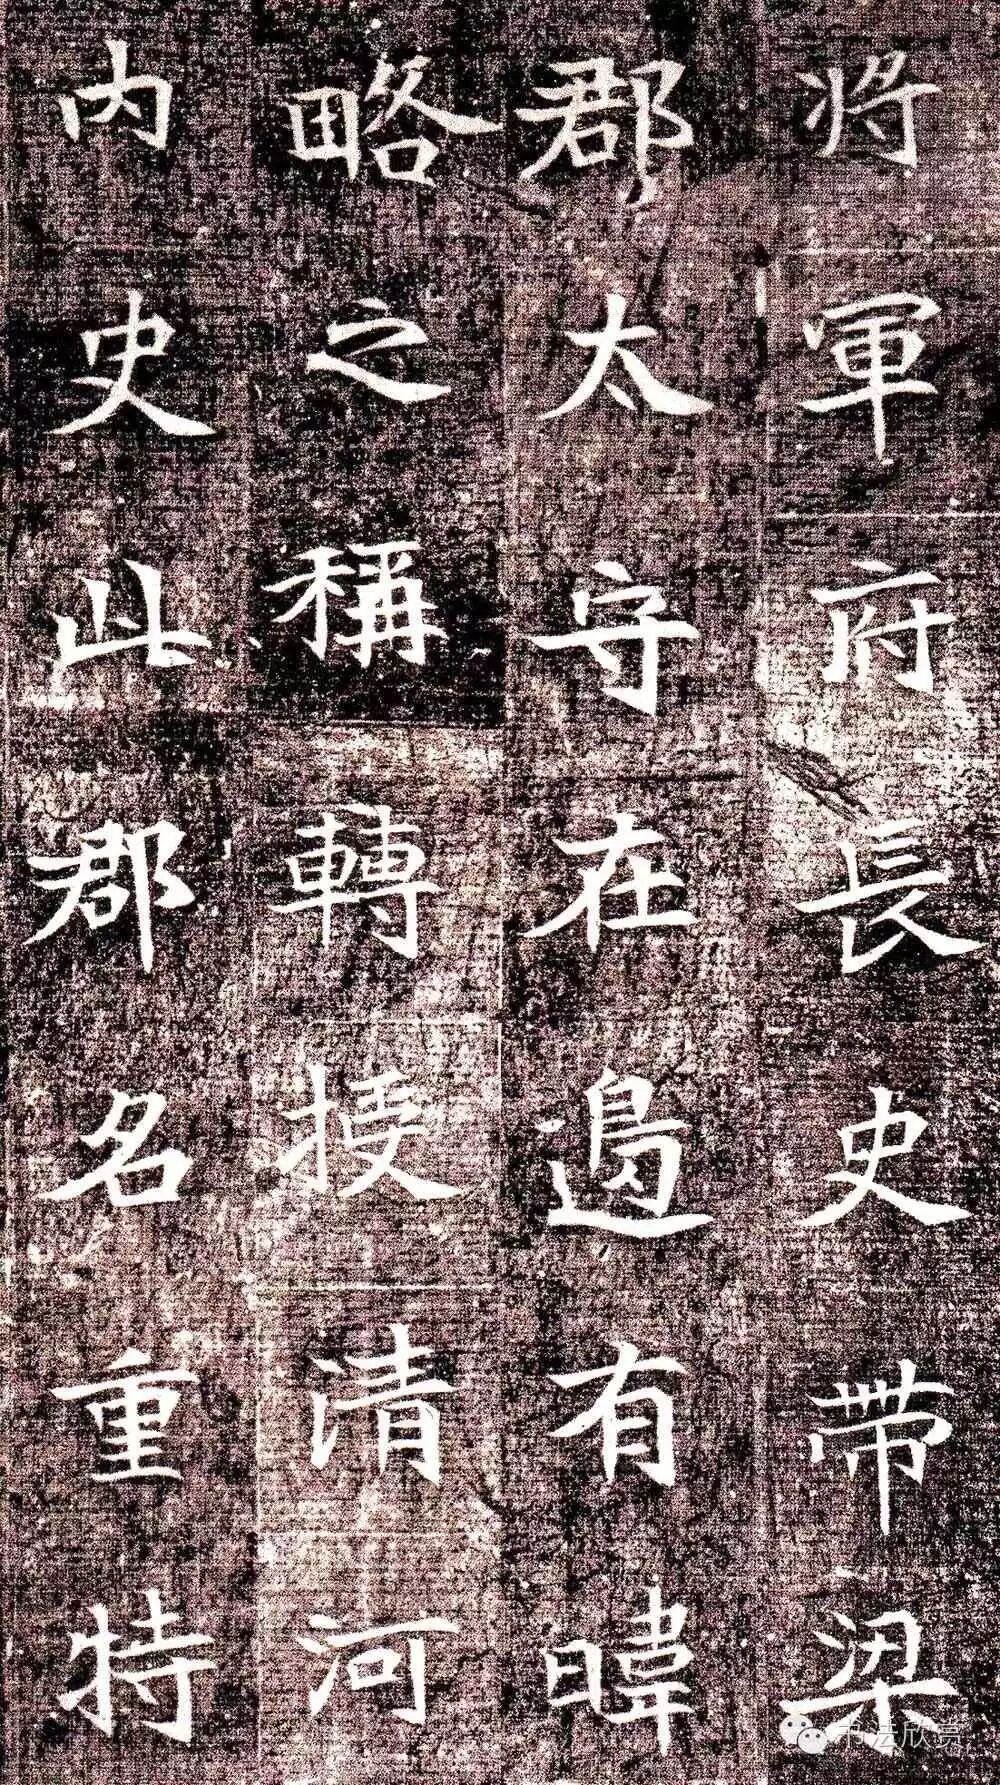 將軍府長史帶梁
郡太守在邊有暐
略之稱轉授清河
內史此郡名重特
书法欣赏